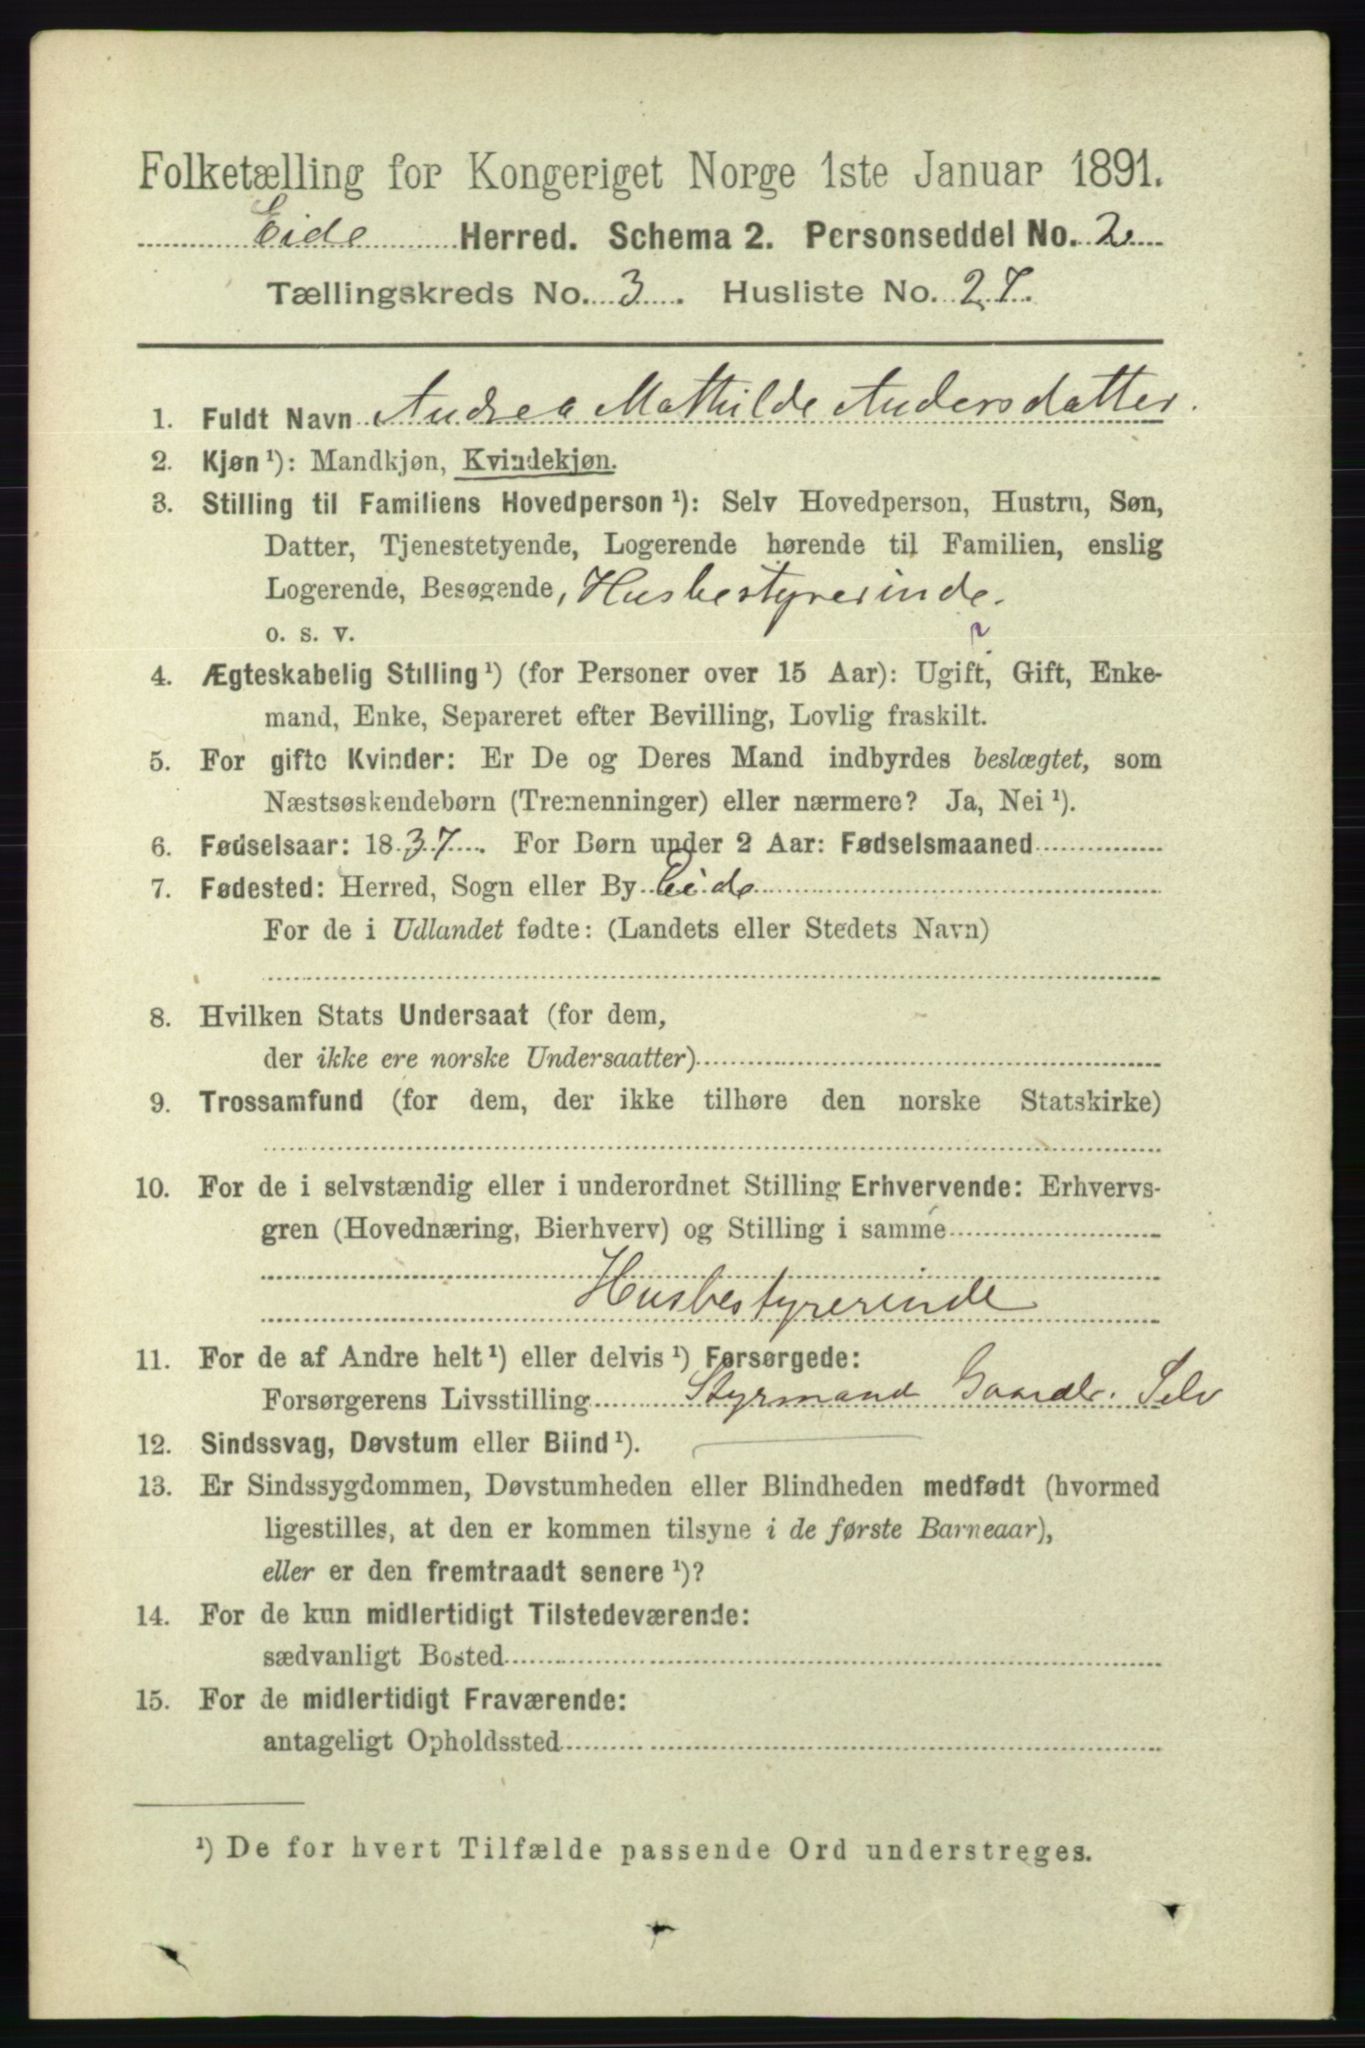 Folketælling for Kongeriget Norge 1ste Januar 1891.
Eide Herred. Schema 2. Personseddel No. 2
Tællingskreds No. 3. Husliste No. 27.
1. Fuldt Navn Andrea Mathilde Andersdatter.
2. Kjøn ¹): Mandkjøn, Kvindekjøn.
3. Stilling til Familiens Hovedperson ¹): Selv Hovedperson, Hustru, Søn,
Datter, Tjenestetyende, Logerende hørende til Familien, enslig
Logerende, Besøgende, Husbestyrerinde.
o. s. v. ?
4. Ægteskabelig Stilling ¹) (for Personer over 15 Aar): Ugift, Gift, Enke-
mand, Enke, Separeret efter Bevilling, Lovlig fraskilt.
5. For gifte Kvinder: Er De og Deres Mand indbyrdes beslægtet, som
Næstsøskendebørn (Tremenninger) eller nærmere? Ja, Nei ¹).
6. Fødselsaar: 1837. For Børn under 2 Aar: Fødselsmaaned
7. Fødested: Herred, Sogn eller By Eide
For de i Udlandet fødte: (Landets eller Stedets Navn)
8. Hvilken Stats Undersaat (for dem,
der ikke ere norske Undersaatter)
9. Trossamfund (for dem, der ikke tilhøre den norske Statskirke)
10. For de i selvstændig eller i underordnet Stilling Erhvervende: Erhvervs-
gren (Hovednæring, Bierhverv) og Stilling i samme
Husbestyrerinde
11. For de af Andre helt ¹) eller delvis ¹) Forsørgede:
Forsørgerens Livsstilling Styrmand Gaardbr. Selv
12. Sindssvag, Døvstum eller Blind ¹).
13. Er Sindssygdommen, Døvstumheden eller Blindheden medfødt (hvormed
ligestilles, at den er kommen tilsyne i de første Barneaar),
eller er den fremtraadt senere ¹)?
14. For de kun midlertidigt Tilstedeværende:
sædvanligt Bosted
15. For de midlertidigt Fraværende:
antageligt Opholdssted
¹) De for hvert Tilfælde passende Ord understreges.